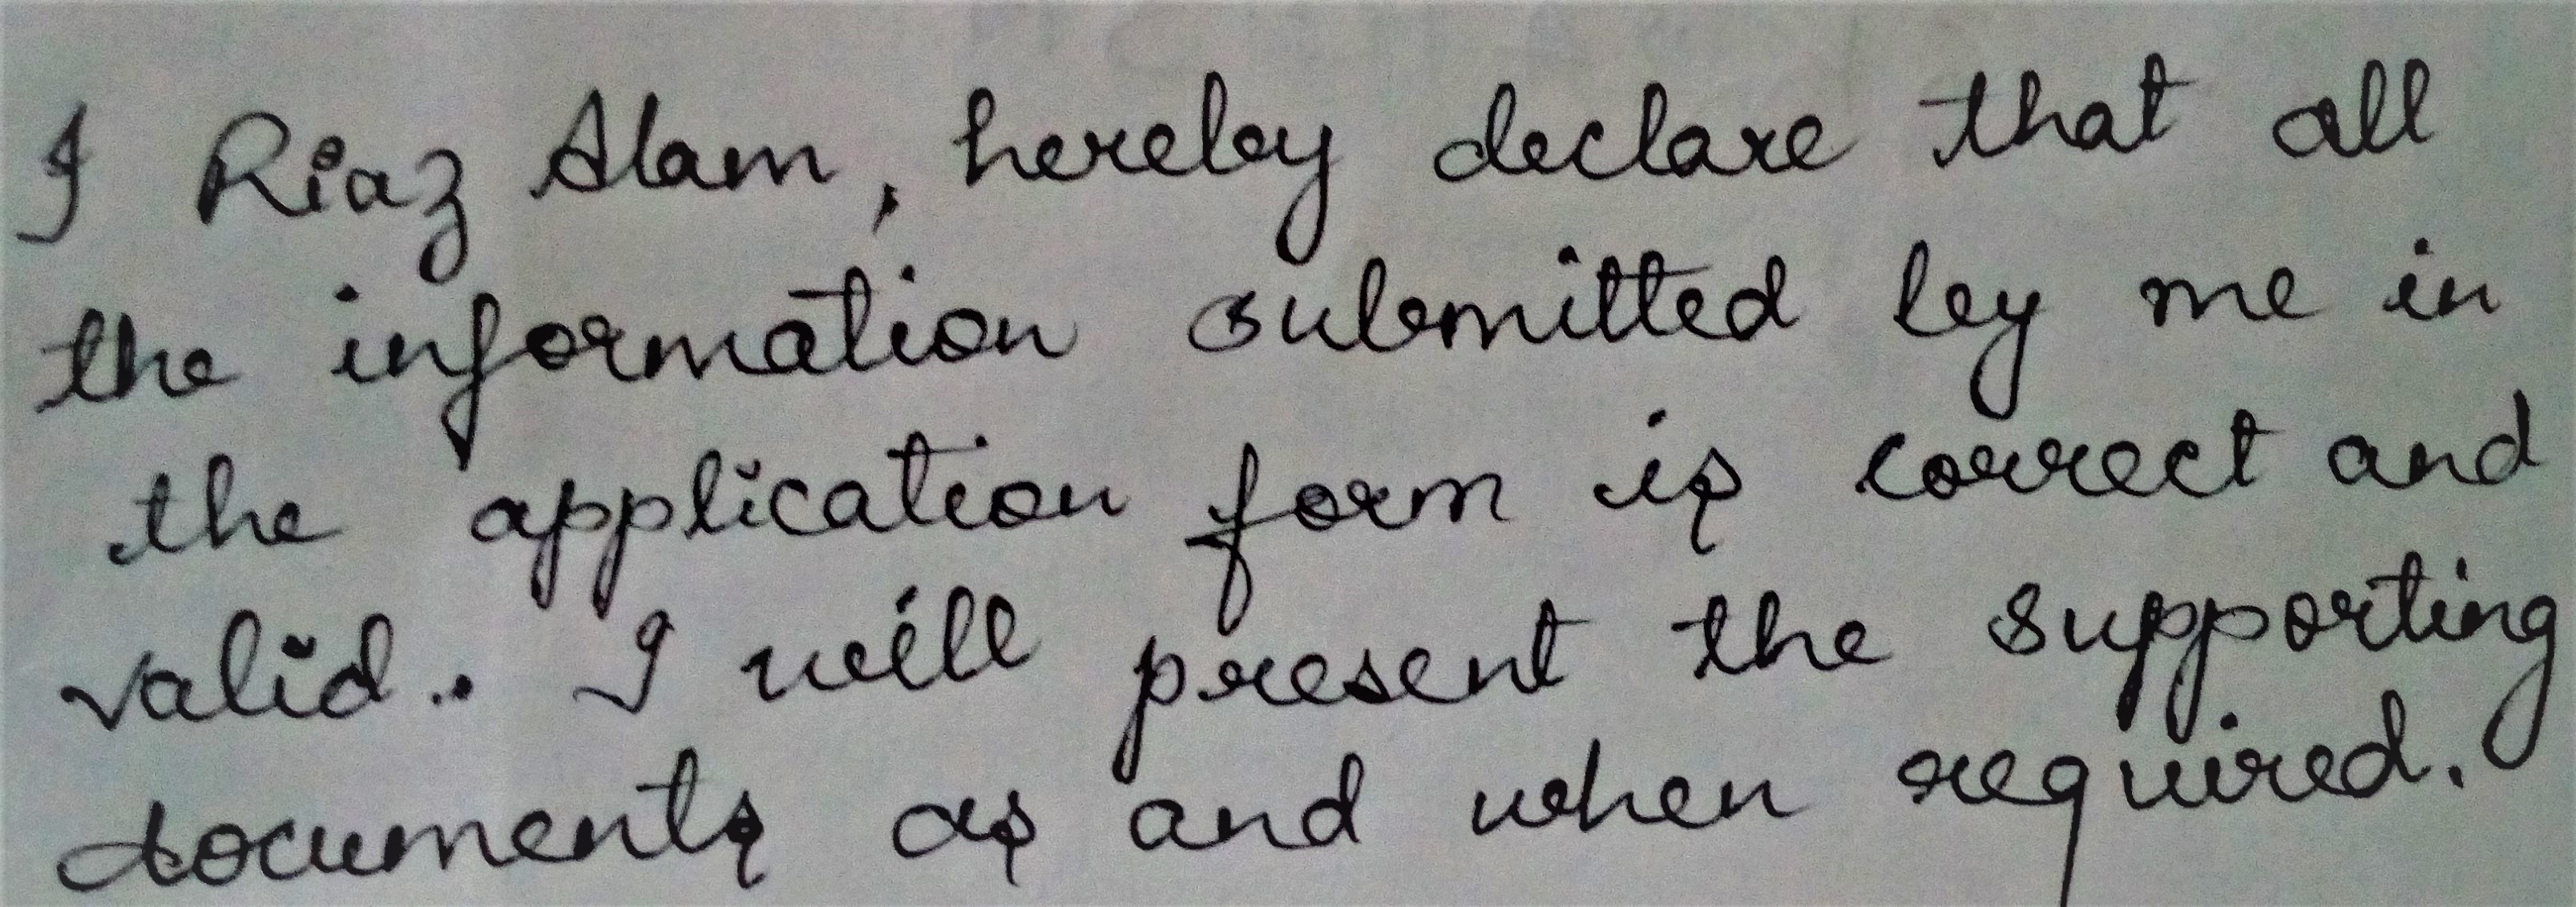 I Riaz Alam, hereby declare that all
the information submitted by me in
the application form is correct and
valid. I will present the supporting
documents as and when required.